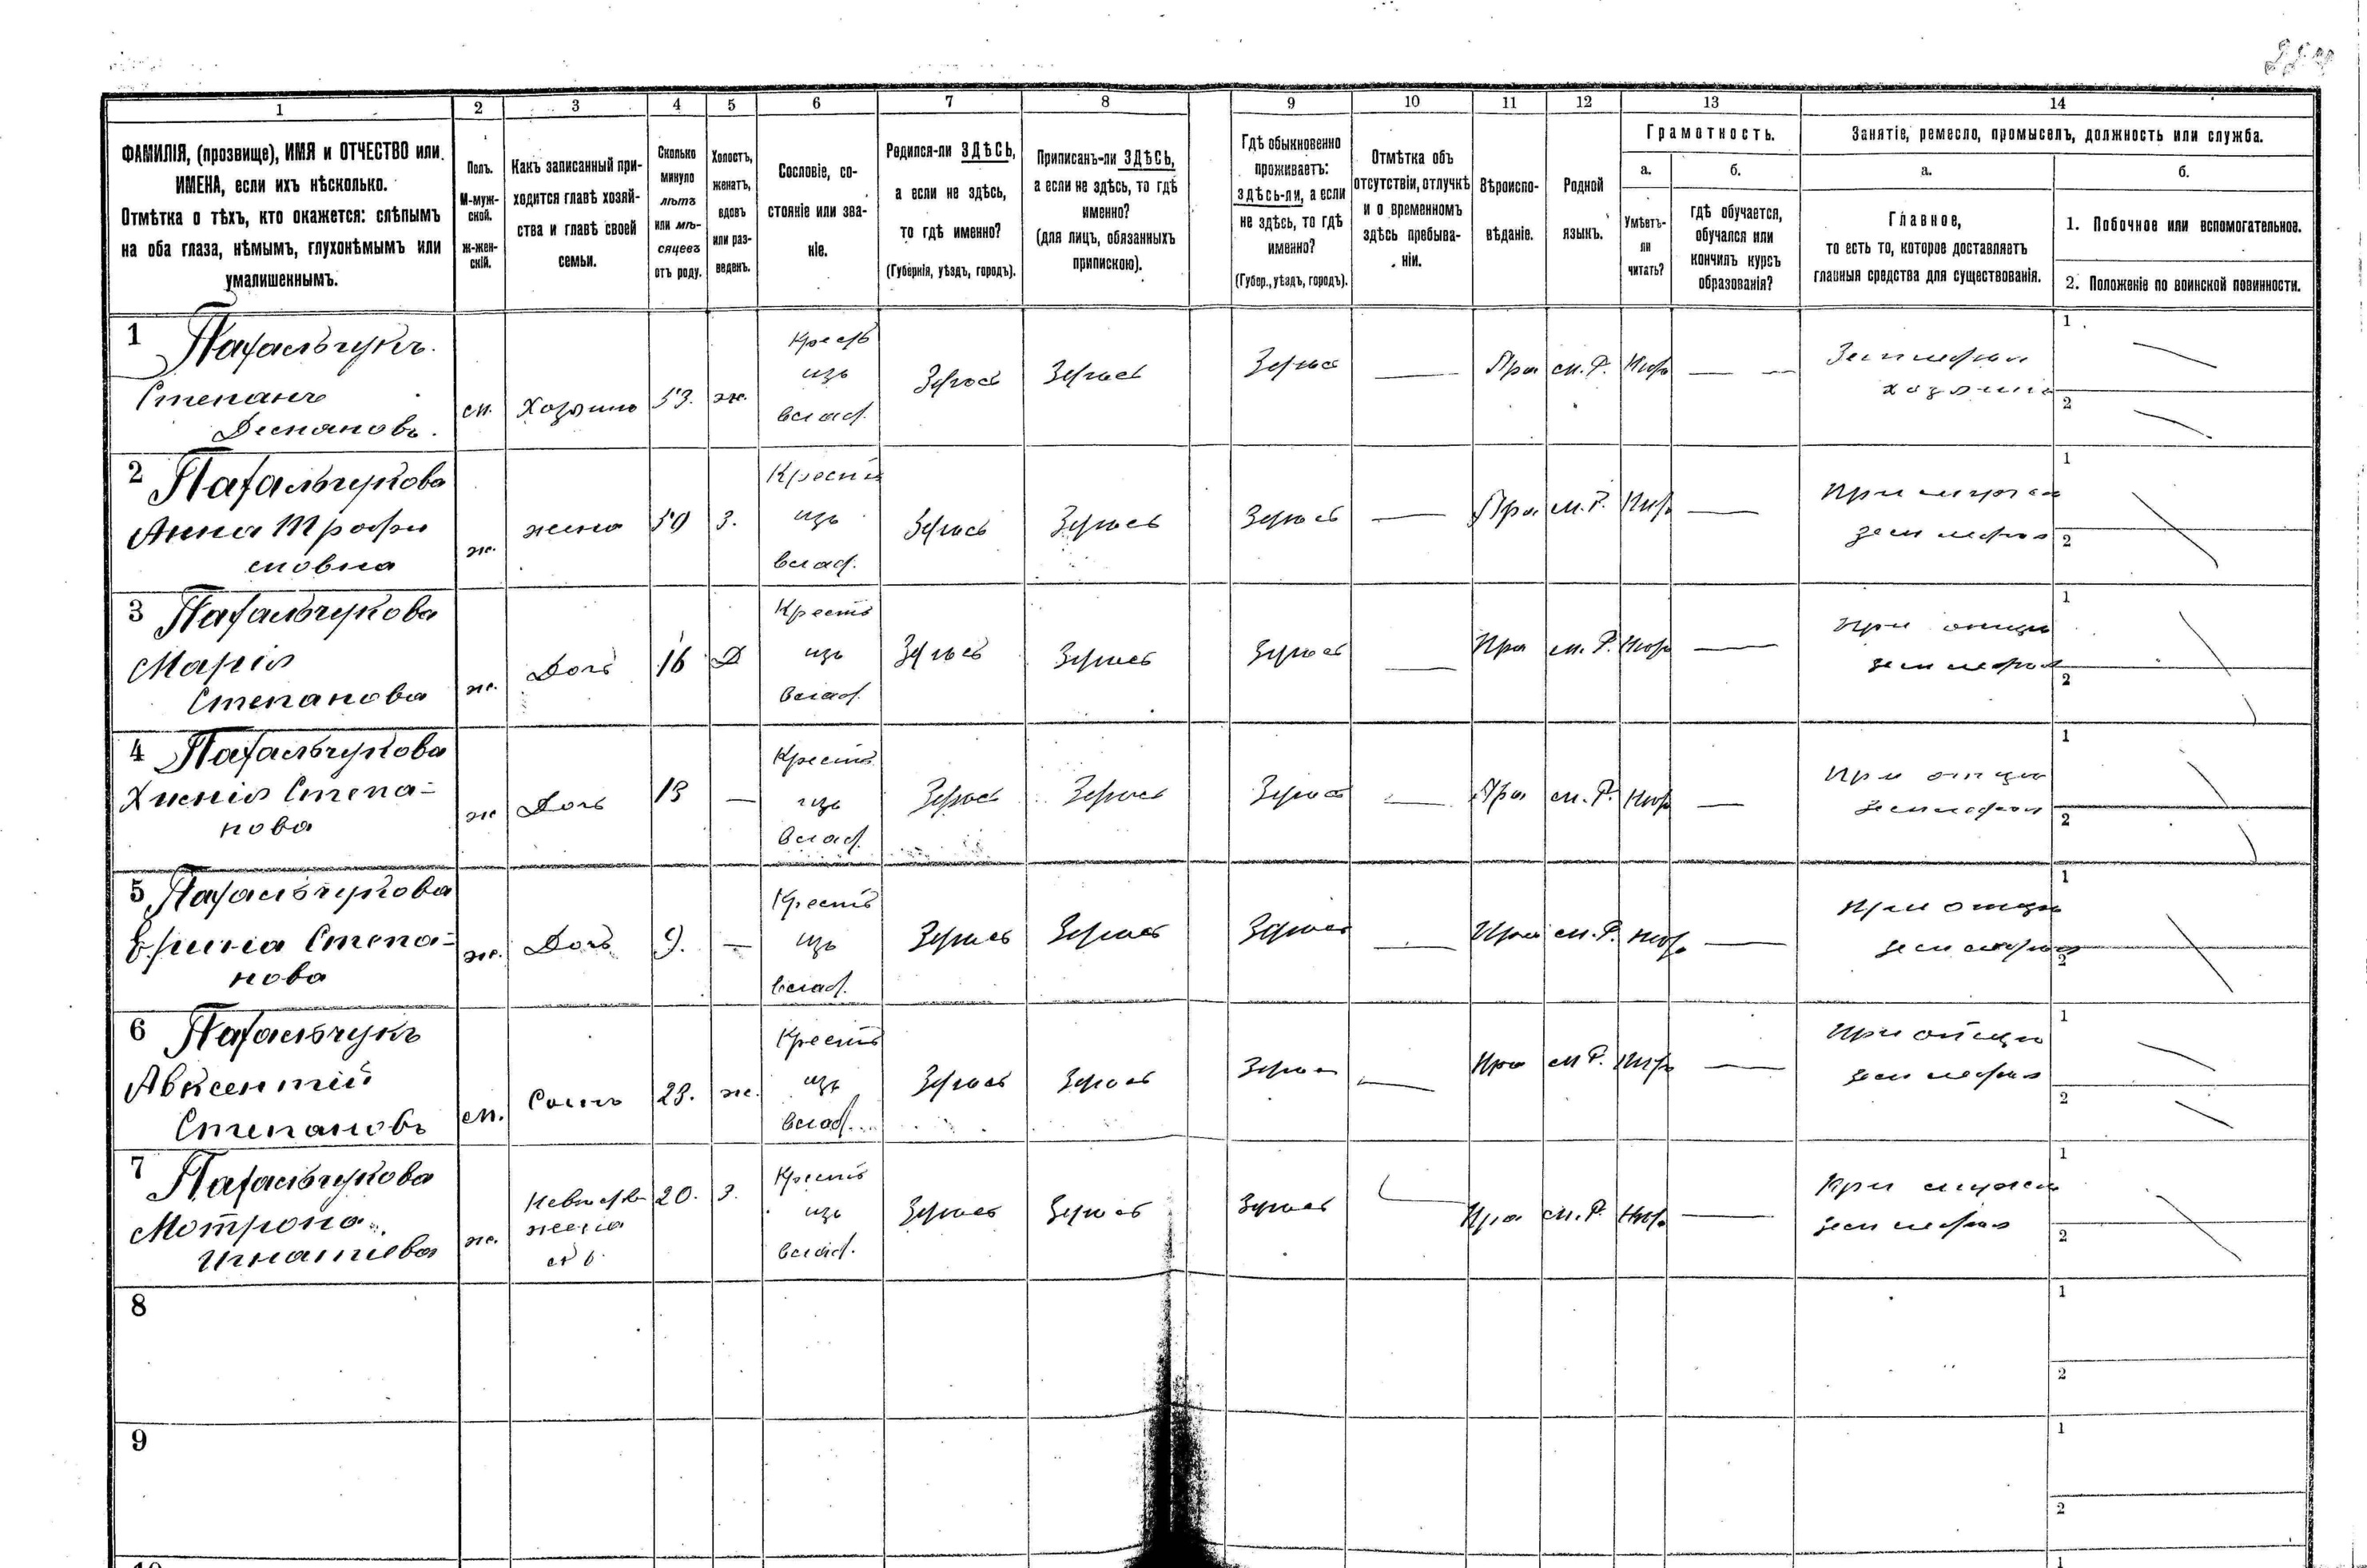 1
2
3
4
5
6
7
8
9
10
11
12
13
14
ФАМИЛІЯ, (прозвище), ИМЯ и ОТЧЕСТВО или
ИМЕНА, если ихъ нѣсколько.
Отмѣтка о тѣхъ, кто окажется: слѣпымъ
на оба глаза, нѣмымъ, глухонѣмымъ или
умалишеннымъ.
Полъ.
М-муж-
ской.
ж-жен-
скій.
Какъ записанный при-
ходится главѣ хозяй-
ства и главѣ своей
семьи.
Сколько
минуло
лѣтъ
или мѣ-
сяцевъ
отъ роду.
Холостъ,
женатъ,
вдовъ
или раз-
веденъ.
Сословіе, со-
стояніе или зва-
ніе.
Родился-ли ЗДѢСЬ,
а если не здѣсь,
то гдѣ именно?
(Губернія, уѣздъ, городъ).
Приписанъ-ли ЗДѢСЬ,
а если не здѣсь, то гдѣ
именно?
(для лицъ, обязанныхъ
припискою).
Гдѣ обыкновенно
проживаетъ:
здѣсь-ли, а если
не здѣсь, то гдѣ
именно?
(Губер., уѣздъ, городъ).
Отмѣтка объ
отсутствіи, отлучкѣ
и о временномъ
здѣсь пребыва-
ніи.
Вѣроиспо-
вѣданіе.
Родной
языкъ.
Грамотность.
а.
Умѣетъ-
ли
читать?
б.
гдѣ обучается,
обучался или
кончилъ курсъ
образованія?
Занятіе, ремесло, промыселъ, должность или служба.
а.
Главное,
то есть то, которое доставляетъ
главныя средства для существованія.
б.
1. Побочное или вспомогательное.
2. Положеніе по воинской повинности.
1
Степанъ
м. Хозяинъ 53. ж.
Крест
изъ
влад.
Здѣсь Здѣсь Здѣсь — Пра м. Р. —
хозяинъ
1
2
2
Анна Трофи
мовна
ж. жена 50 З.
Крест
изъ
влад.
Здѣсь Здѣсь Здѣсь — Пра м. Р. —
При мужѣ
1
2
3
Марія
Степанова
ж. Дочь 16 Д
Крестъ
изъ
влад.
Здѣсь Здѣсь Здѣсь — Пра м. Р. —
При отцѣ
1
2
4
Хиснія Степа-
нова
ж Дочь 13 —
Крестъ
изъ
влад.
Здѣсь Здѣсь Здѣсь — Пра м. Р. —
При отцѣ
1
2
5
Степа-
нова
ж. Дочь 9. —
Крестъ
изъ
влад.
Здѣсь Здѣсь Здѣсь — Пра м. Р. —
При отцѣ
1
2
6
Авксентій
Степановъ
м. Сынъ 23. ж.
Крестъ
изъ
влад.
Здѣсь Здѣсь Здѣсь — Пра м Р. —
При отцѣ
1
2
7
Мотрона
Игнатіева
ж. жена 20. З.
Крестъ
изъ
влад.
Здѣсь Здѣсь Здѣсь — Пра м. Р. —
При мужѣ
1
2
8
1
2
9
1
2
1